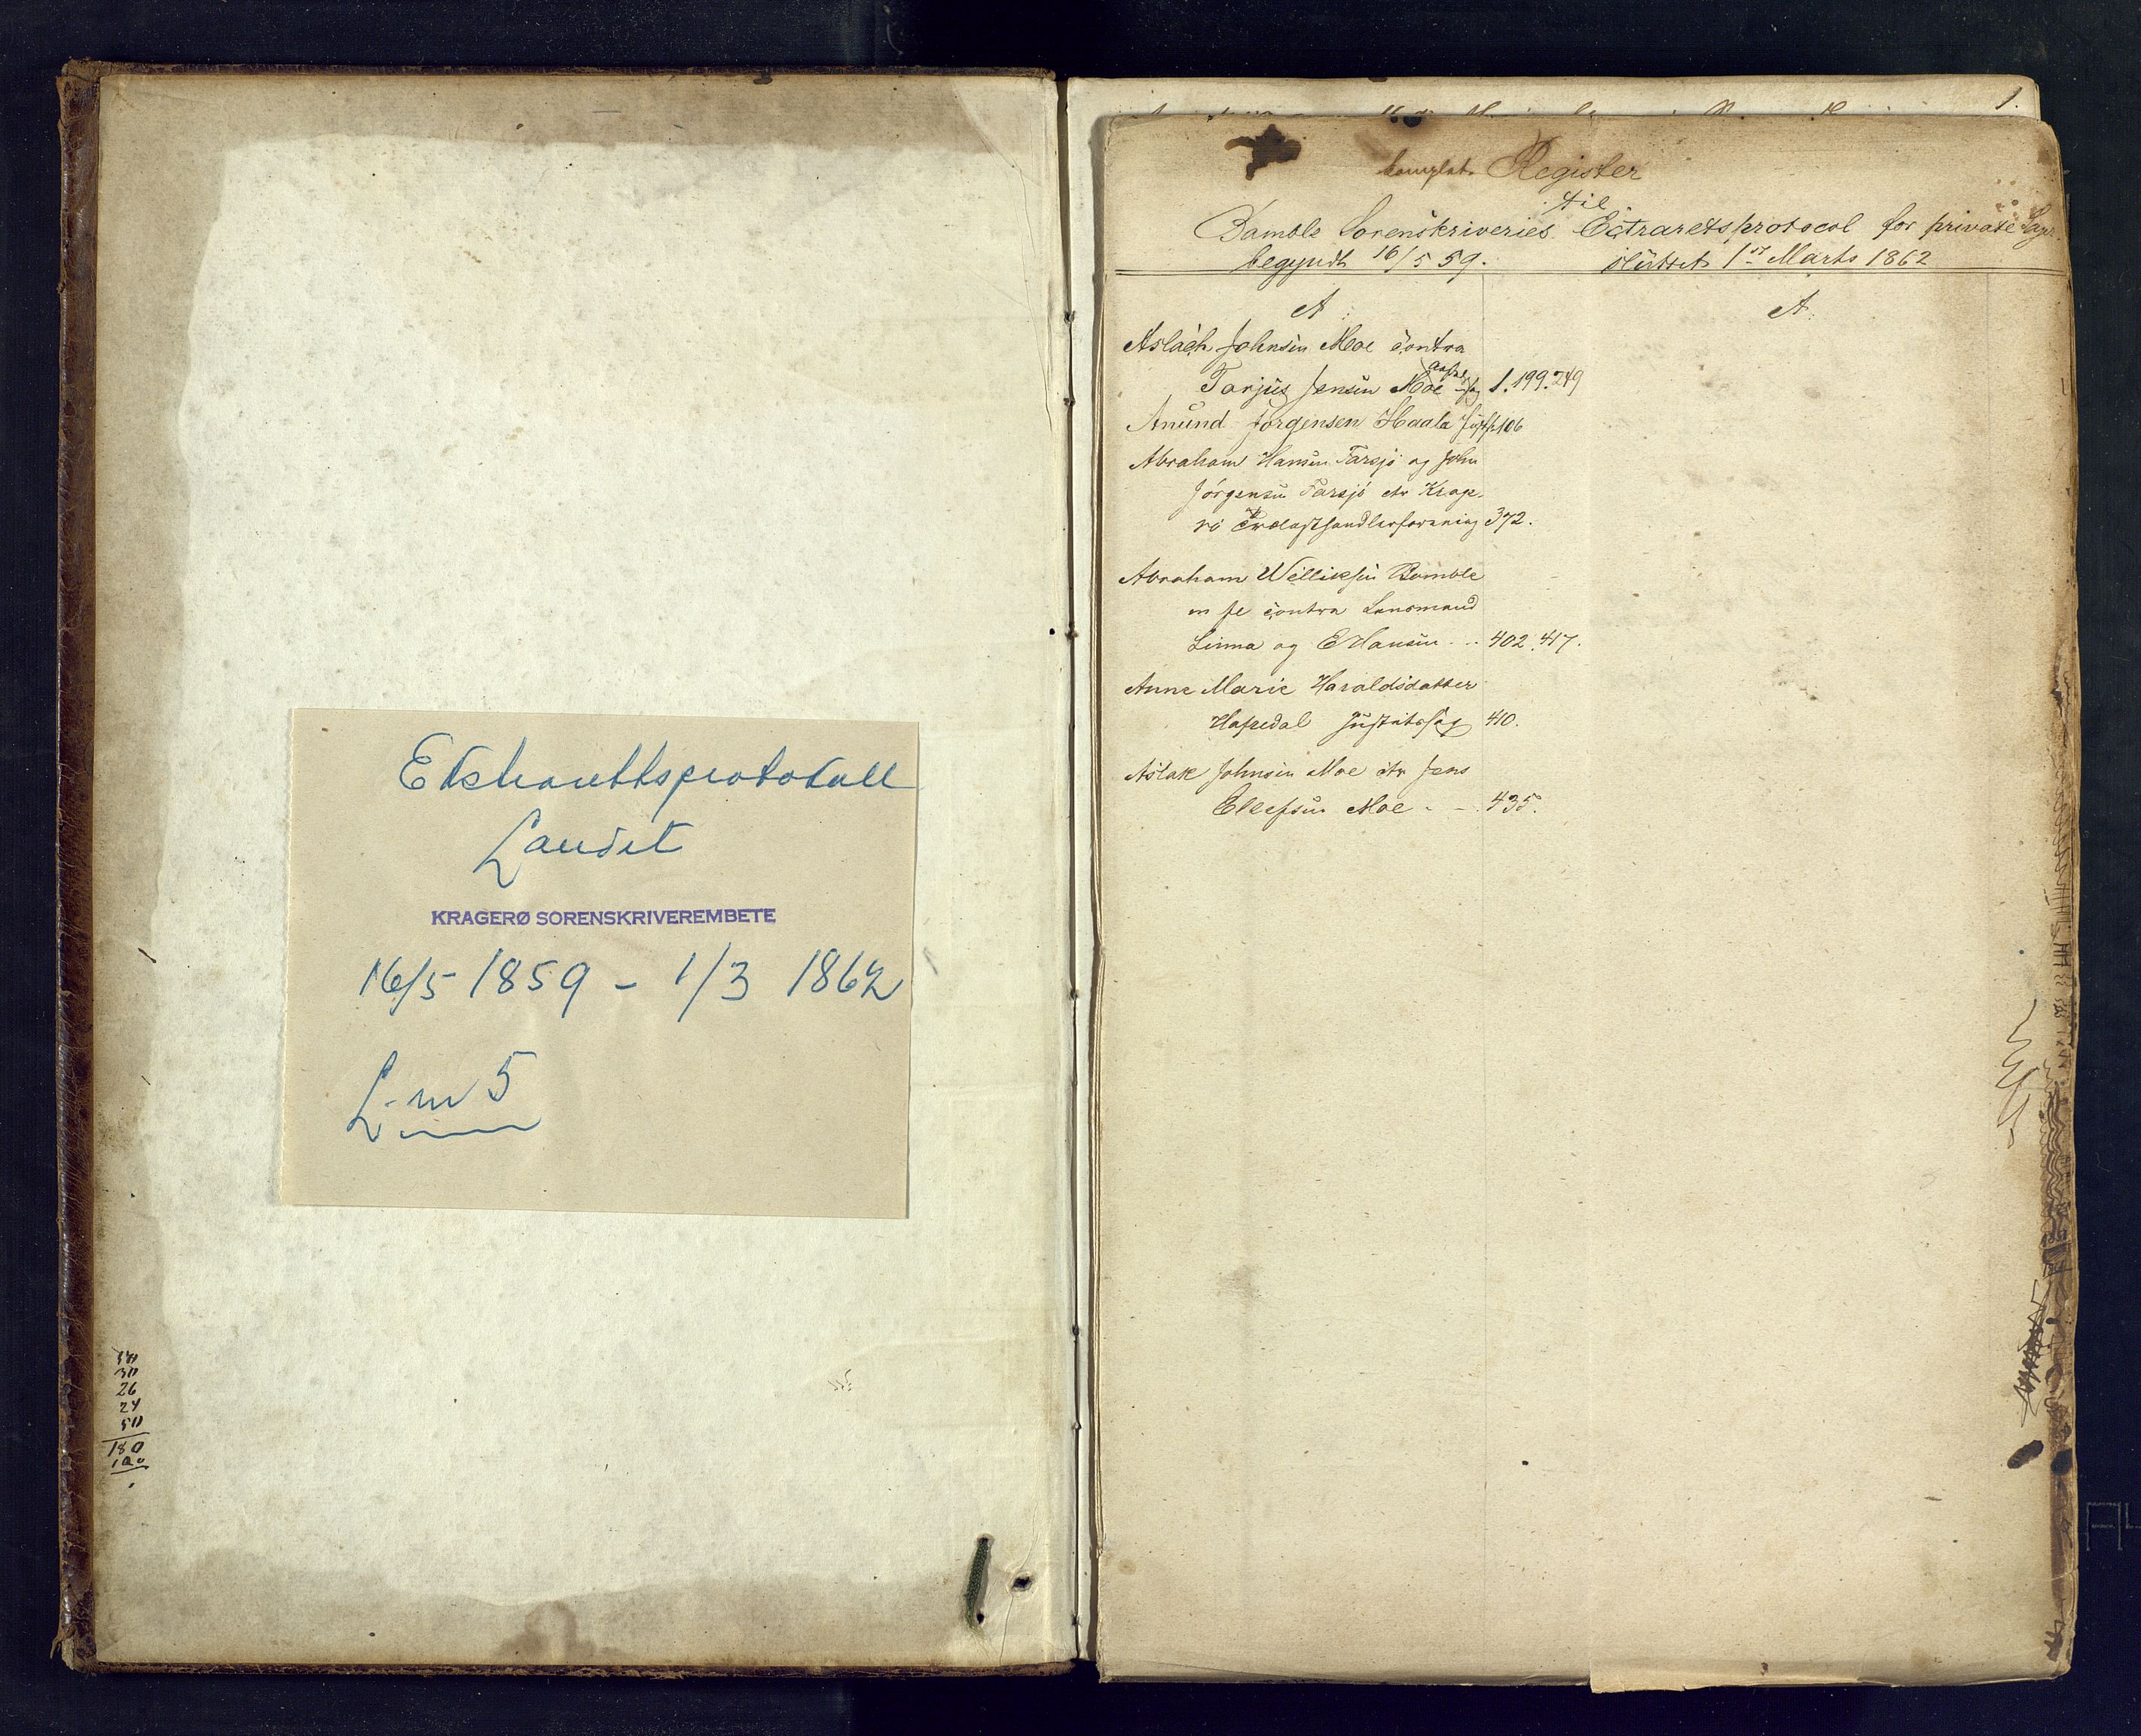 Ekstrarettsprotokoll
Landet
KRAGERØ SORENSKRIVEREMBETE
16/5 1859 - 1/3 1862
L. nr 5
30
26
24
50
180
1.
komplet Register
til
Bamble Sorenskriveries Extraretsprotocol for private Sager
begyndt 16/5 59. sluttet 1st Marts 1862
A. A.
Aslach Johnsen Moe contra
Tarjus Jensen Moe 1. 199. 249
Anund Jørgensen Haala 106
Abraham Hansen Farsjø og John
Jørgensen Farsjø ctr Krage-
rø Trælasthandlerforening 372.
Abraham Willeksen Bamble
contra Lensmand
Linna og E Hansen 402. 417.
Anne Marie Haraldsdatter
Hafsedal Justitssag 410.
Aslak Johnsen Moe ctr Jens
Ellefsen Moe - - 435.